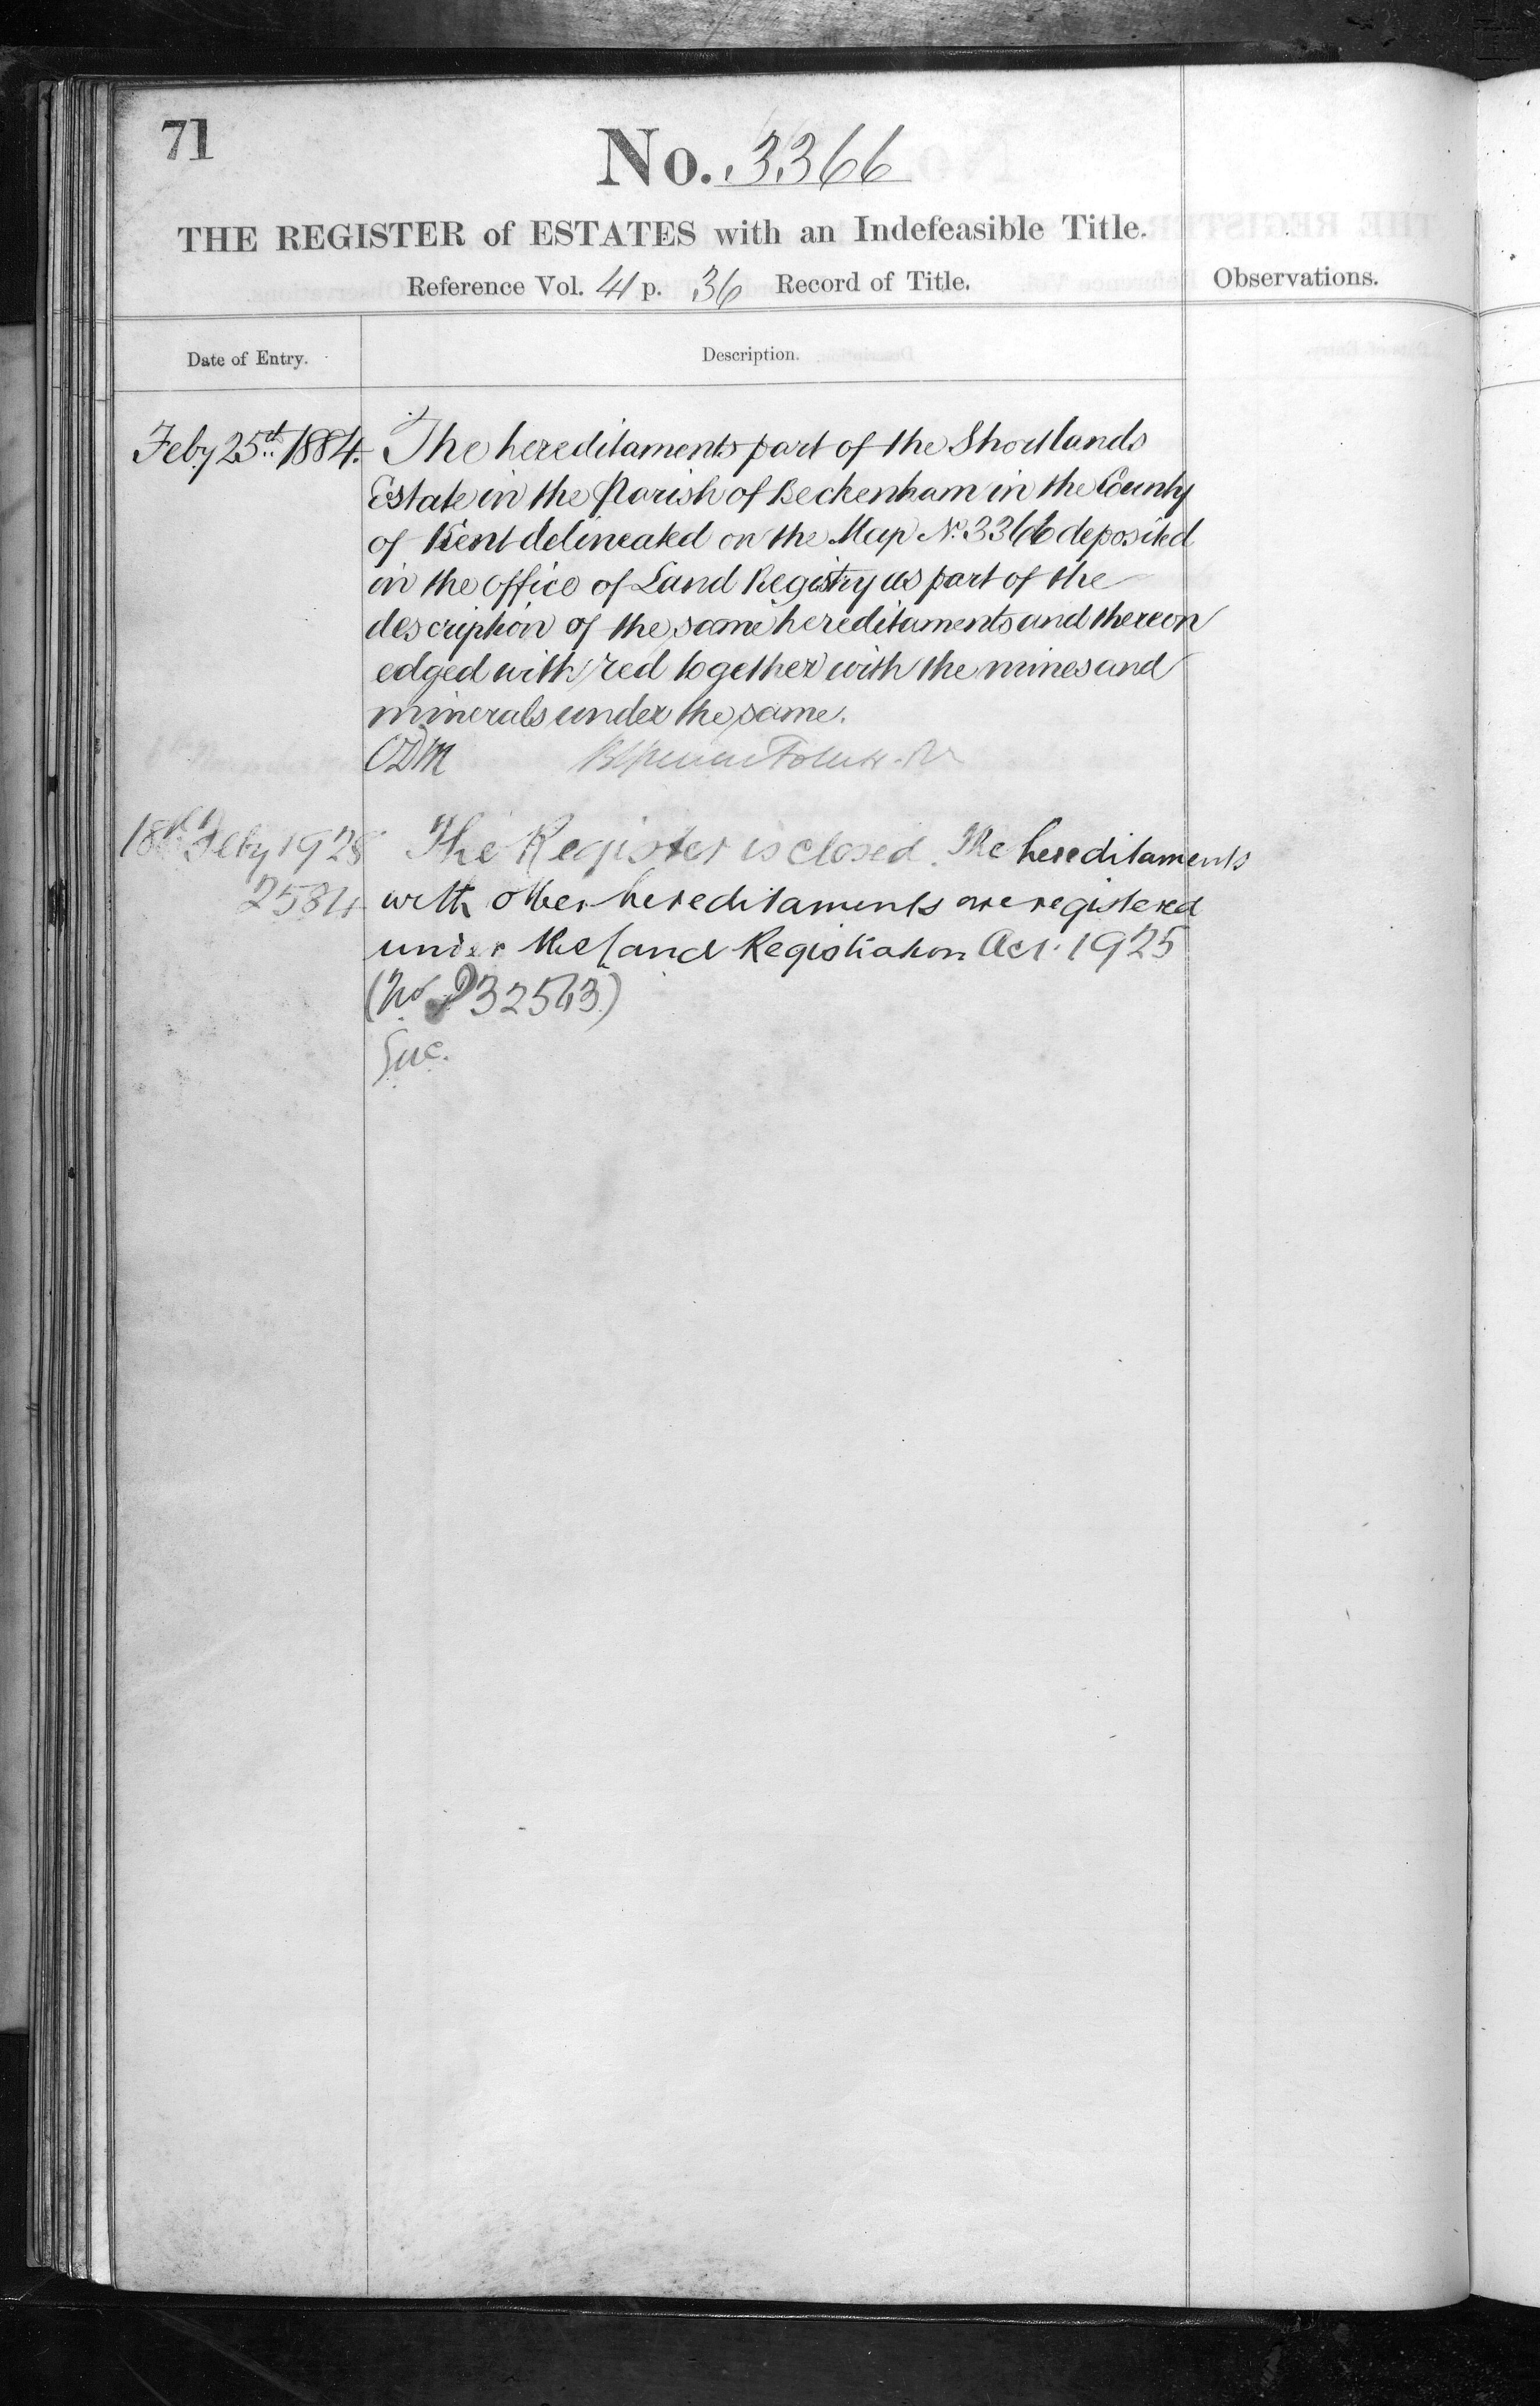 71
No. 3366
THE REGISTER of ESTATES with an Indefeasible Title.
Reference Vol. 41 p. 36 Record of Title.
Observations.
Date of Entry.
Description.
Feby 25th 1884. The hereditaments part of the Shortlands
Estate in the Parish of Beckenham in the County
of Kent delineated on the Map No. 3366 deposited
in the office of Land Registry as part of the
description of the same hereditaments and thereon
edged with red together with the mines and
minerals under the same.
18th Feby 1928 The Register is closed. The hereditaments
2584 with other hereditaments are registered
under the Land Registration Act. 1925
(No P32543)